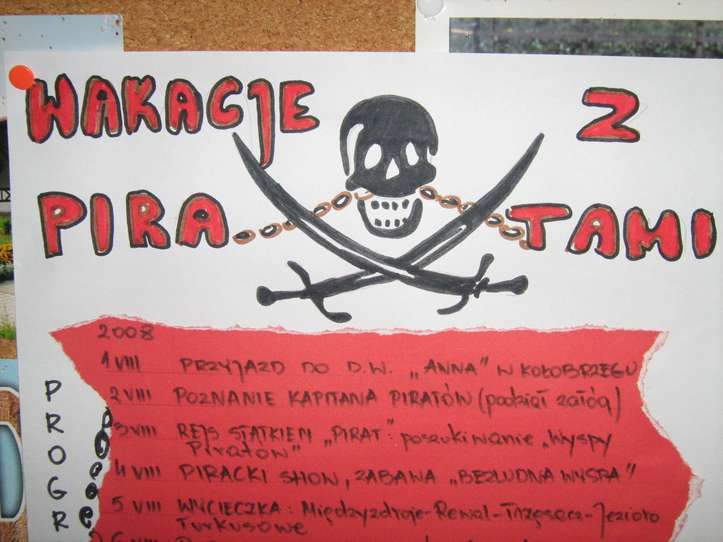 WAKACJE Z
PIRATAMI
2008
1 VIII PRZYJAZD DO D.W. „ANNA" W KOŁOBRZEGU
2 VIII POZNANIE KAPITANA PIRATÓW (podział załóg)
3 VIII REJS STATKIEM „PIRAT": poszukiwanie „Wyspy
Piratów"
4 VIII PIRACKI SHOW, ZABAWA „BEZLUDNA WYSPA"
5 VIII WYCIECZKA: Międzyzdroje-Rewal-Trzęsacz-Jezioro
Turkusowe
6 VIII
P
R
O
G
R